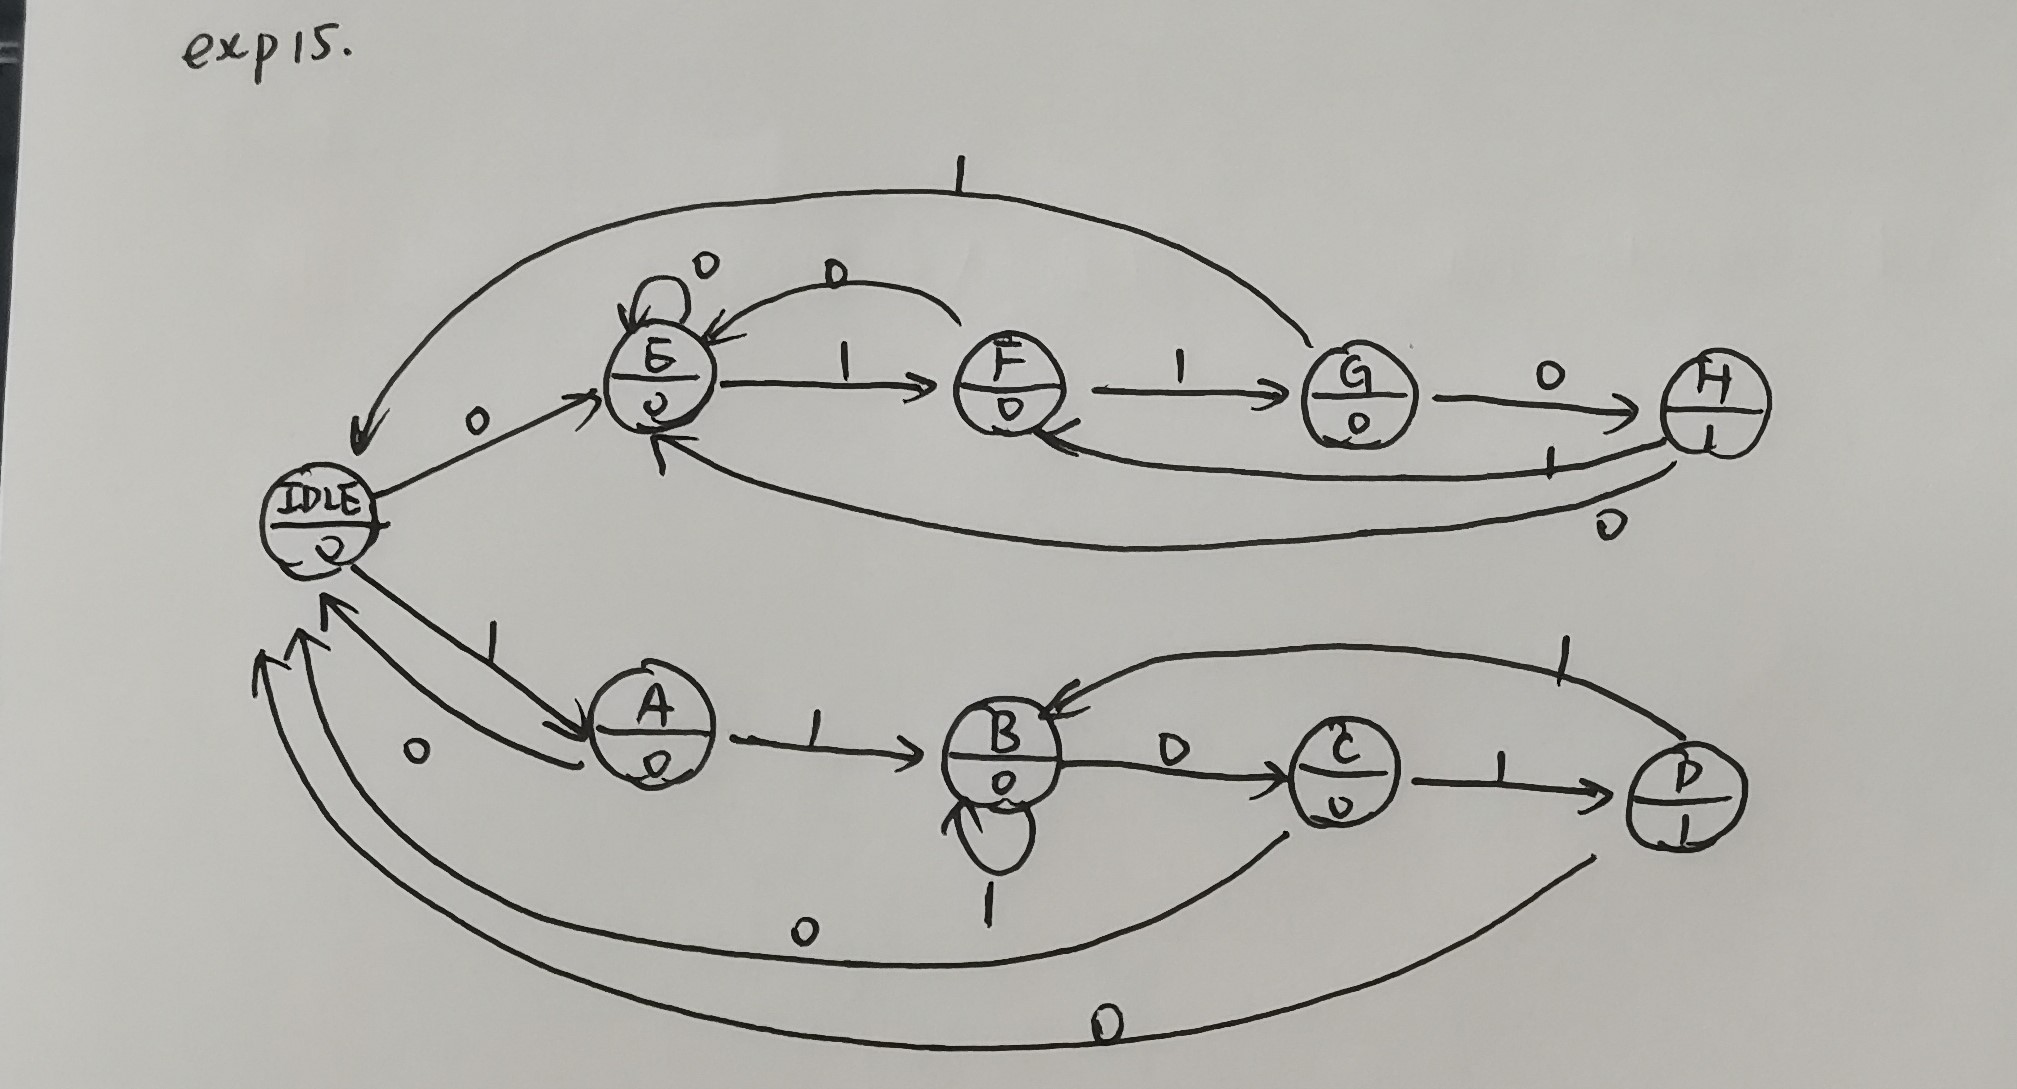 exp15.
1
0
0
E
0
1
F
0
1
G
0
0
H
1
0
1
0
IDLE
0
1
0
A
0
1
B
0
1
0
C
0
1
D
1
1
0
0